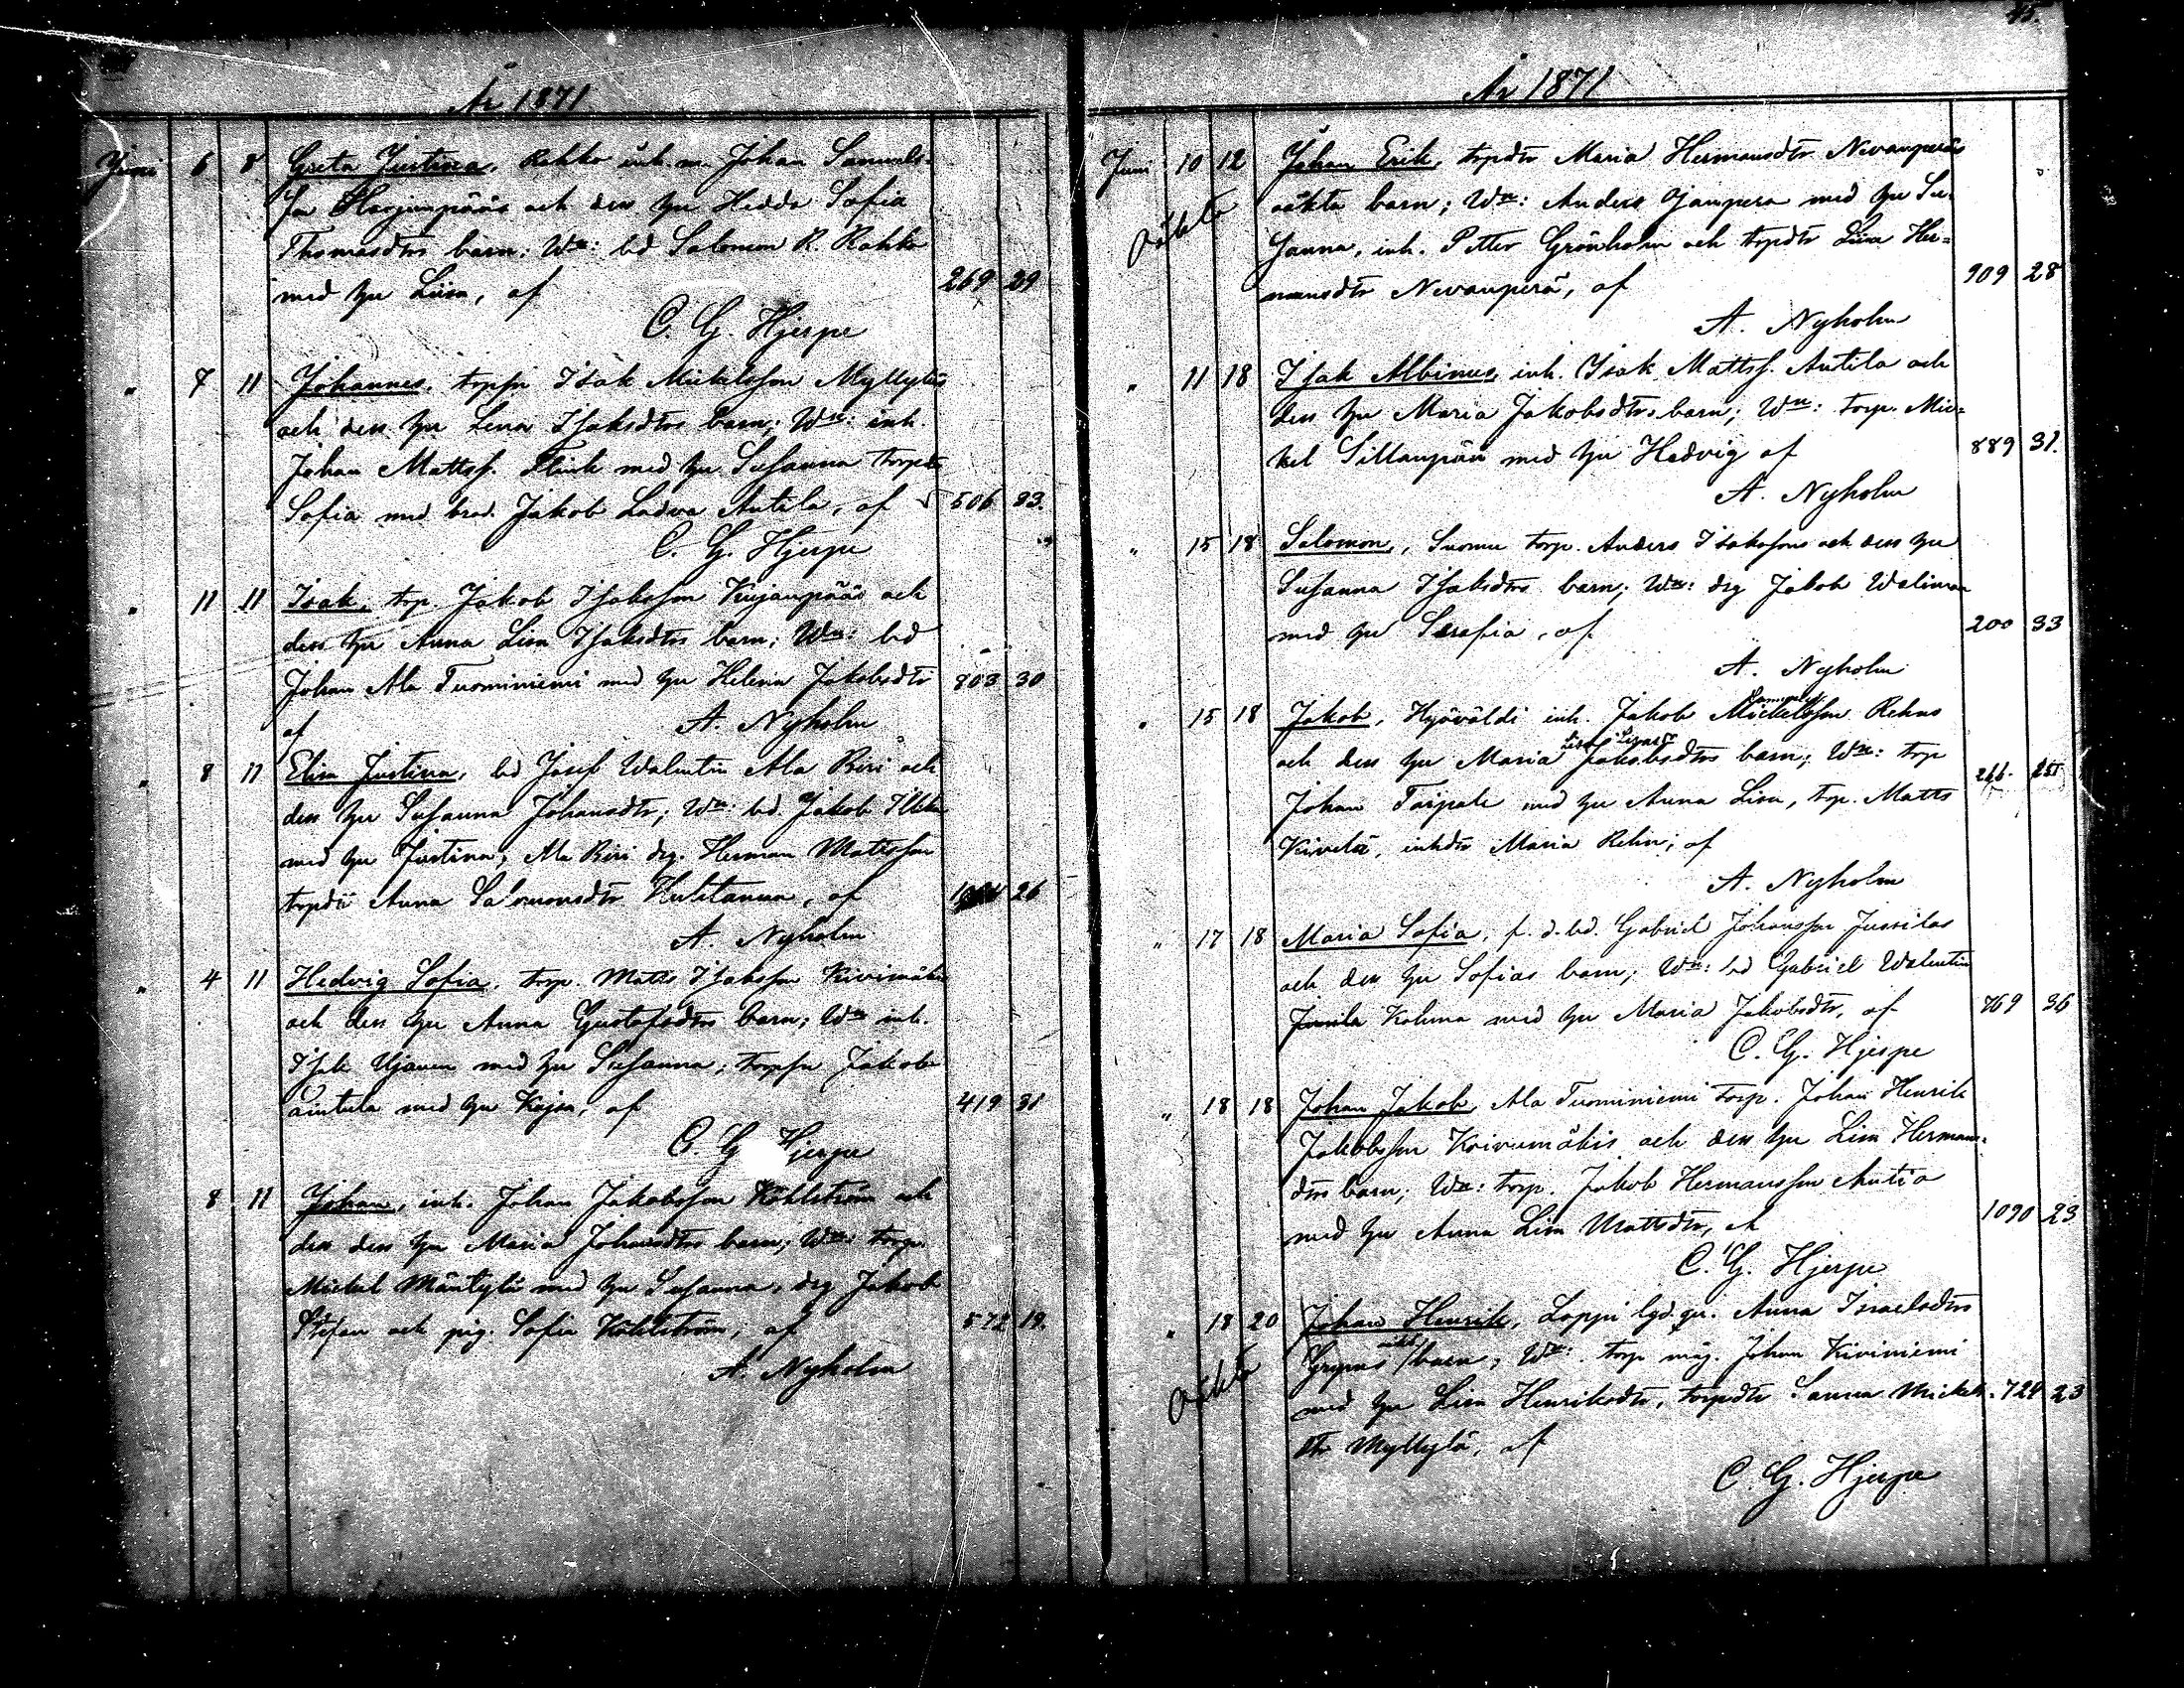 År 1871
Juni 6 8 Greta Justina, Rahko inh. m. Johan Samuels-
son Harjunpääs och dess hu Hedda Sofia
Thomasdtrs barn; Wn: bd Salomon R. Rahko
med hu Liisa, af 269 29
C. G. Hjerpe
" 7 11 Johannes, torpsn Isak Mickelsson Myllyläs
och dess hu Lena Isaksdtrs barn; Wn: inh.
Johan Mattss. Flink med hu Susanna torpdtr
Sofia med brod. Jakob Ladva Antila, af 506 33.
C. G. Hjerpe
" 11 11 Isak, torp. Jakob Isaksson Kujanpääs och
dess hu Anna Lisa Isaksdtrs barn; Wn: bd
Johan Ala Tuominiemi med hu Helena Jakobsdtr 803 30
af A. Nyholm
" 8 11 Elisa Justina, bd Josef Walentin Ala Biri och
dess hu Susanna Johansdtr; Wn: bd. Jakob
med hu Justina, Ala Biri drg. Herman Mattsson
Anna Salomonsdtr, af 26
A. Nyholm
" 4 11 Hedvig Sofia, torp. Matts Isaksson Kivimäkis
och dess hu Anna Gustafsdtrs barn; Wn inh.
Isak Ujanen med hu Susanna; torpsn Jakob
med hu Kajsa, af 419 31
C. G Hjerpe
8 11 Johan, inh. Johan Jakobsson Kåhlström och
dess dess hu Maria Johansdtrs barn; Wn: torp.
Mickel Mäntylä med hu Susanna, drg Jakob
Stefan och pig. Sofia Kåhlström, af 572 19.
A. Nyholm
45.
År 1871
Juni 10 12 Johan Erik, torpdtr Maria Hermansdtr Nevanperäs
oäkta oäkta barn; Wn: Anders Janpera med hu Su-
sanna, inh. Petter Grönholm och torpdtr Liisa Her-
mansdtr Nevanperä, af 909 28
A. Nyholm
" 11 18 Isak Albinus, inh. Isak Mattss. Antila och
dess hu Maria Jakobsdtrs barn; Wn: torp. Mic-
kel Sillanpää med hu Hedvig af 889 31.
A. Nyholm
" 15 18 Salomon, Suomu torp. Anders Isakssons och dess hu
Susanna Isaksdtrs barn; Wn: drg Jakob Waliman
med hu Serafia, af 200 33
A. Nyholm
" 15 18 Jakob, Hyöväldi inh. Jakob Mickelsson Rehns
Samuels
och dess hu Maria Jakobsdtrs barn; Wn: torp
Johan Torpali med hu Anna Lisa, torp. Matts 266. 25
Kivelä, inhdtr Maria Rehn; af
A. Nyholm
" 17 18 Maria Sofia, f. d. bd. Gabriel Johansson Jussilas
och dess hu Sofias barn; Wn: bd Gabriel Walentin
Jussila Kohma med hu Maria Jakobsdtr, af 769 36
C. G. Hjerpe
" 18 18 Johan Jakob, Ala Tuominiemi torp. Johan Henrik
Jakobsson Koivumäkis och dess hu Lisa Hermans-
dtrs barn; Wn: torp. Jakob Hermansson Antia
med hu Anna Lisa Mattsdtr, af 1090 23
C. G. Hjerpe
" 18 20 Johan Henrik, Loppi lgd. qv. Anna Israelsdtrs
oäkta barn; Wn: torp måg. Johan Kiviniemi
Oäkta
med hu Lisa Henriksdtr, torpdtr Sanna Mickels- 724 23
dtr Myllylä, af
C. G. Hjerpe